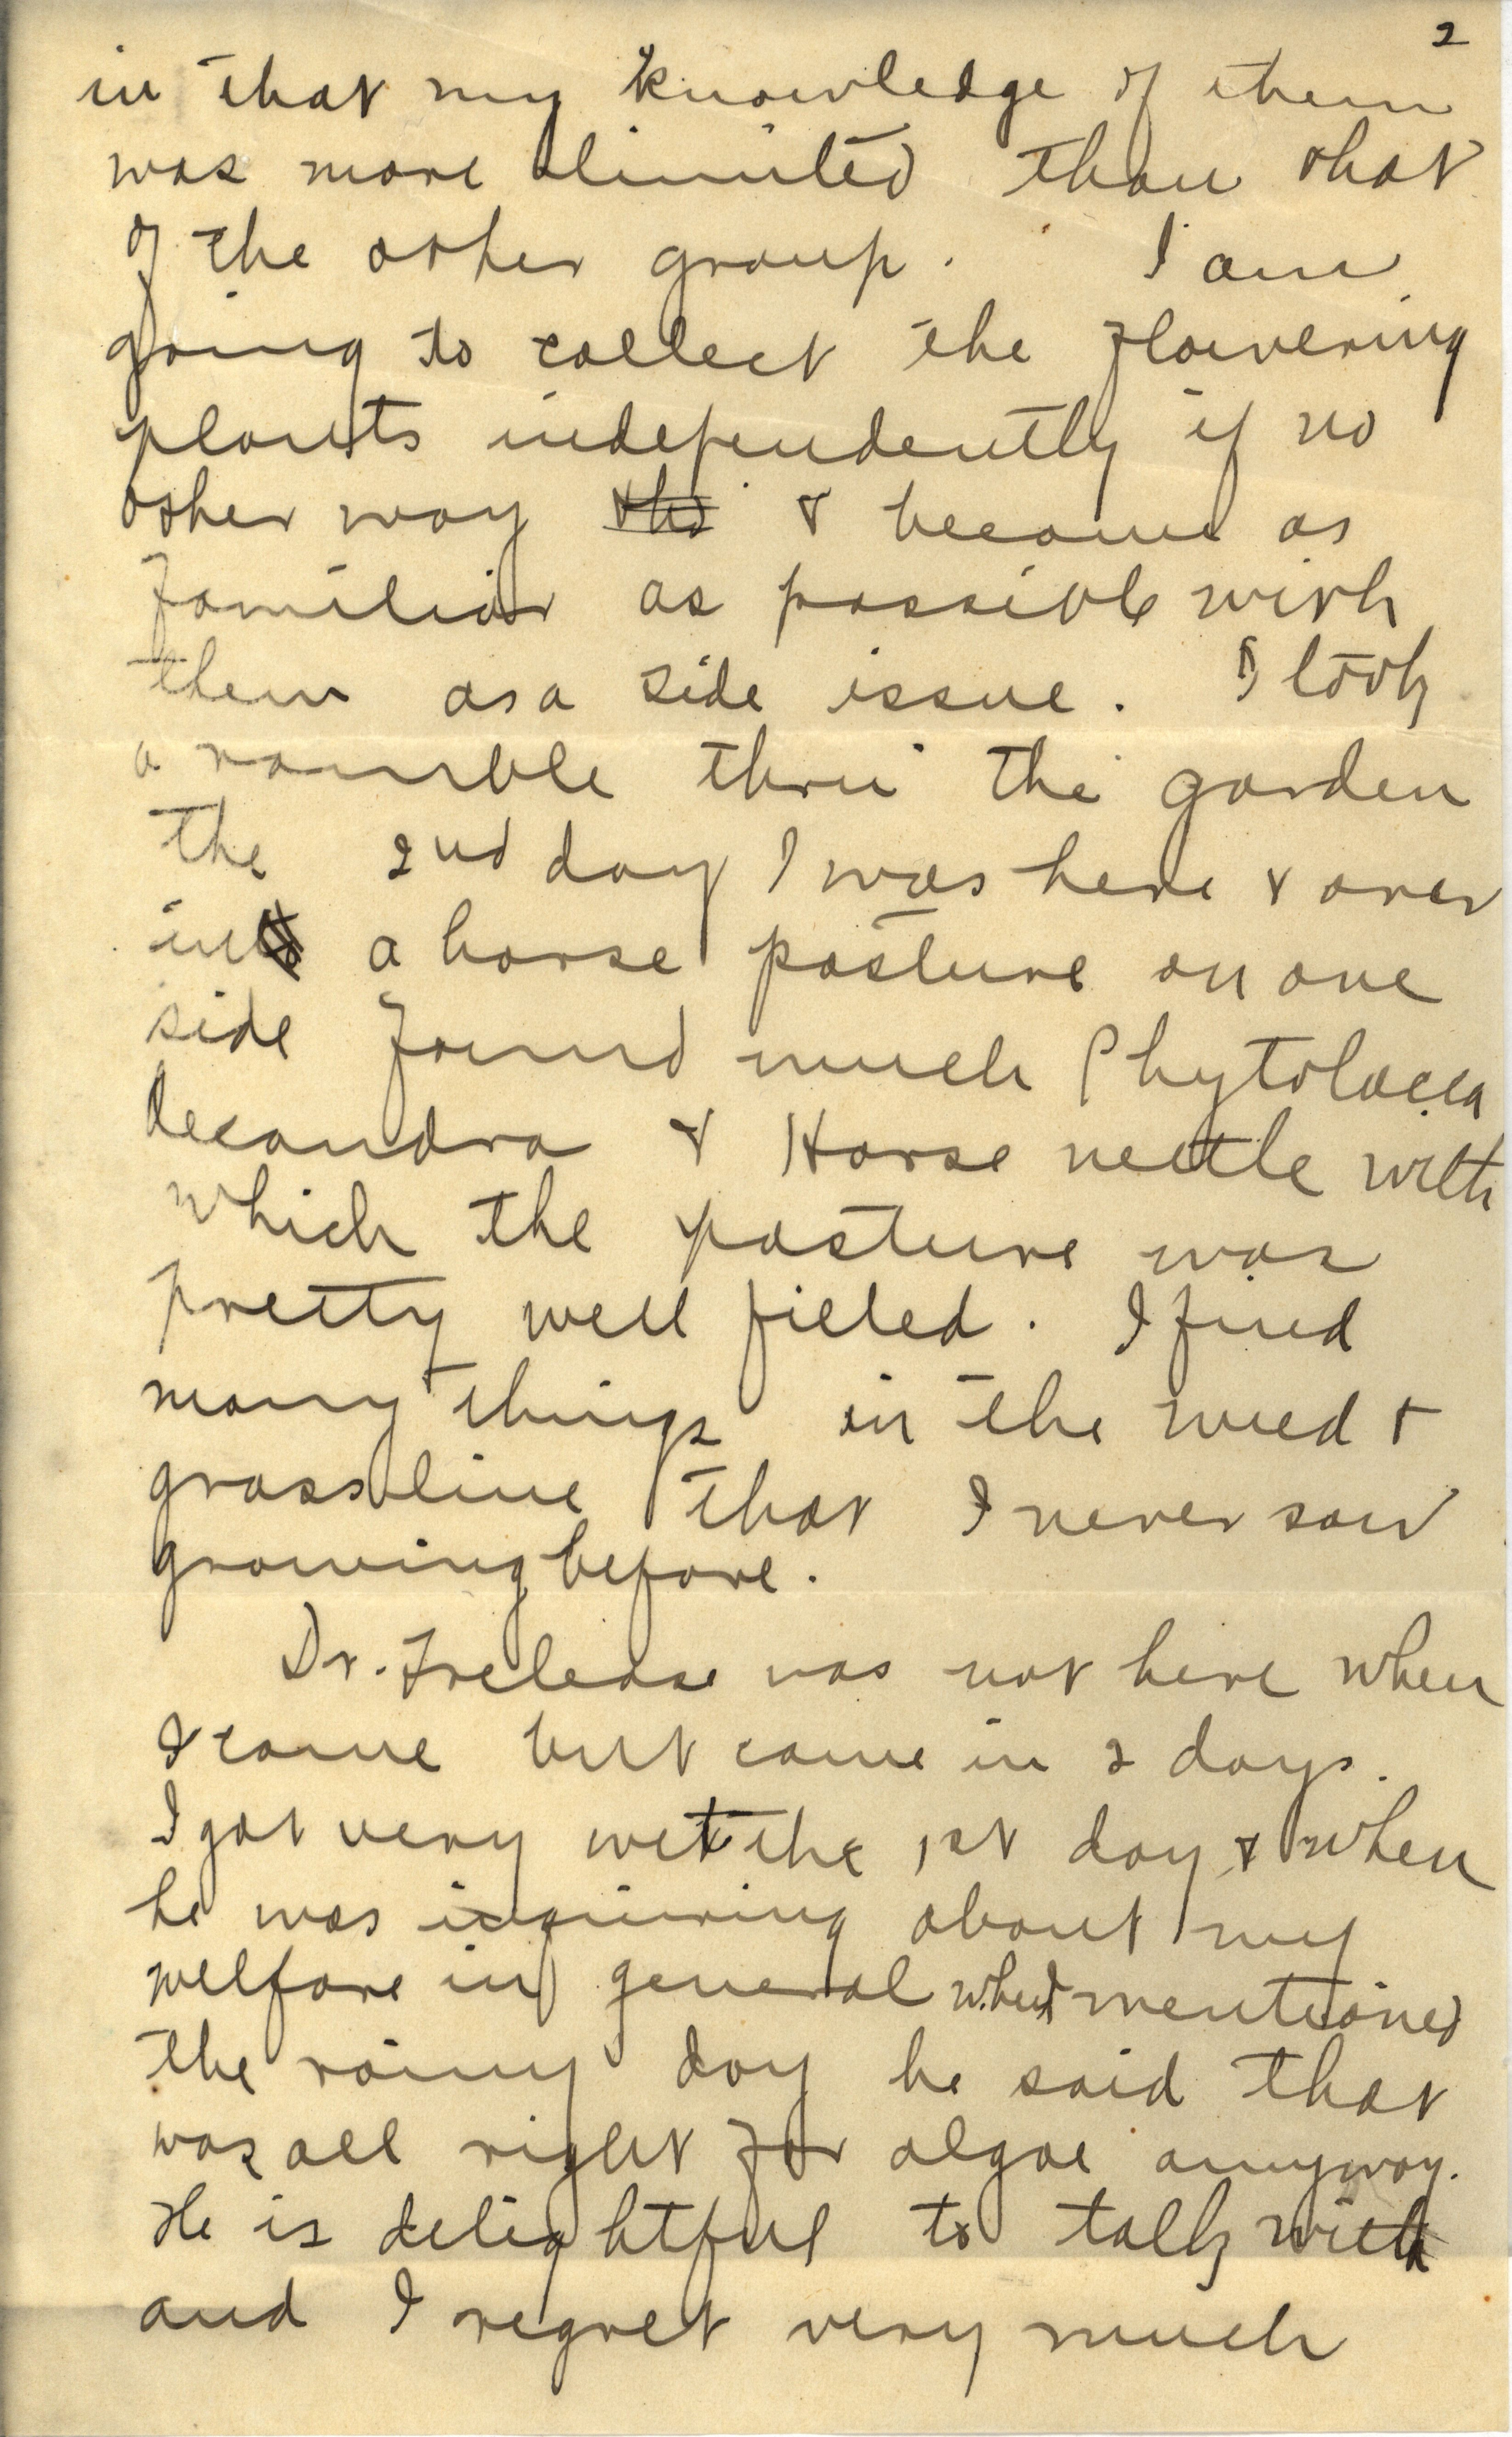 2
in that my knowledge of them
was more limited than that
of the other group. I am
going to collect the flowering
plants independently if no
other way the & become as
familiar as possible with
them as a side issue. I took
a ramble thru the garden
the 2nd day I was here & over
in a horse pasture on one
side found much Phytolacca
decandra & Horse nettle with
which the pasture was
pretty well filled. I find
many things in the weed &
grass line that I never saw
growing before.
Dr. Trelease was not here when
I came but came in 2 days.
I got very wet the 1st day & when
he was inquiring about my
welfare in general when I mentioned
the rainy day he said that
was all right for algae anyway.
He is delightful to talk with
and I regret very much